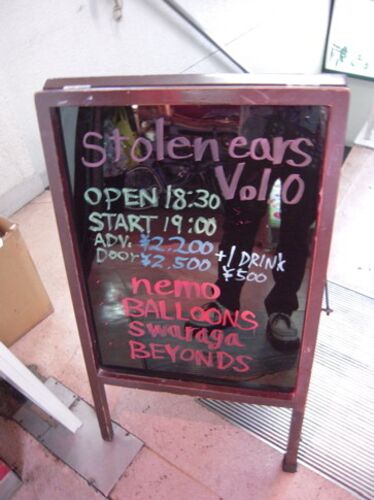 Stolen ears
Vol.0
OPEN 18:30
START 19:00
ADV. ¥2.200
Door ¥2.500
+1 DRINK
¥500
nemo
BALLOONS
swaraga
BEYONDS